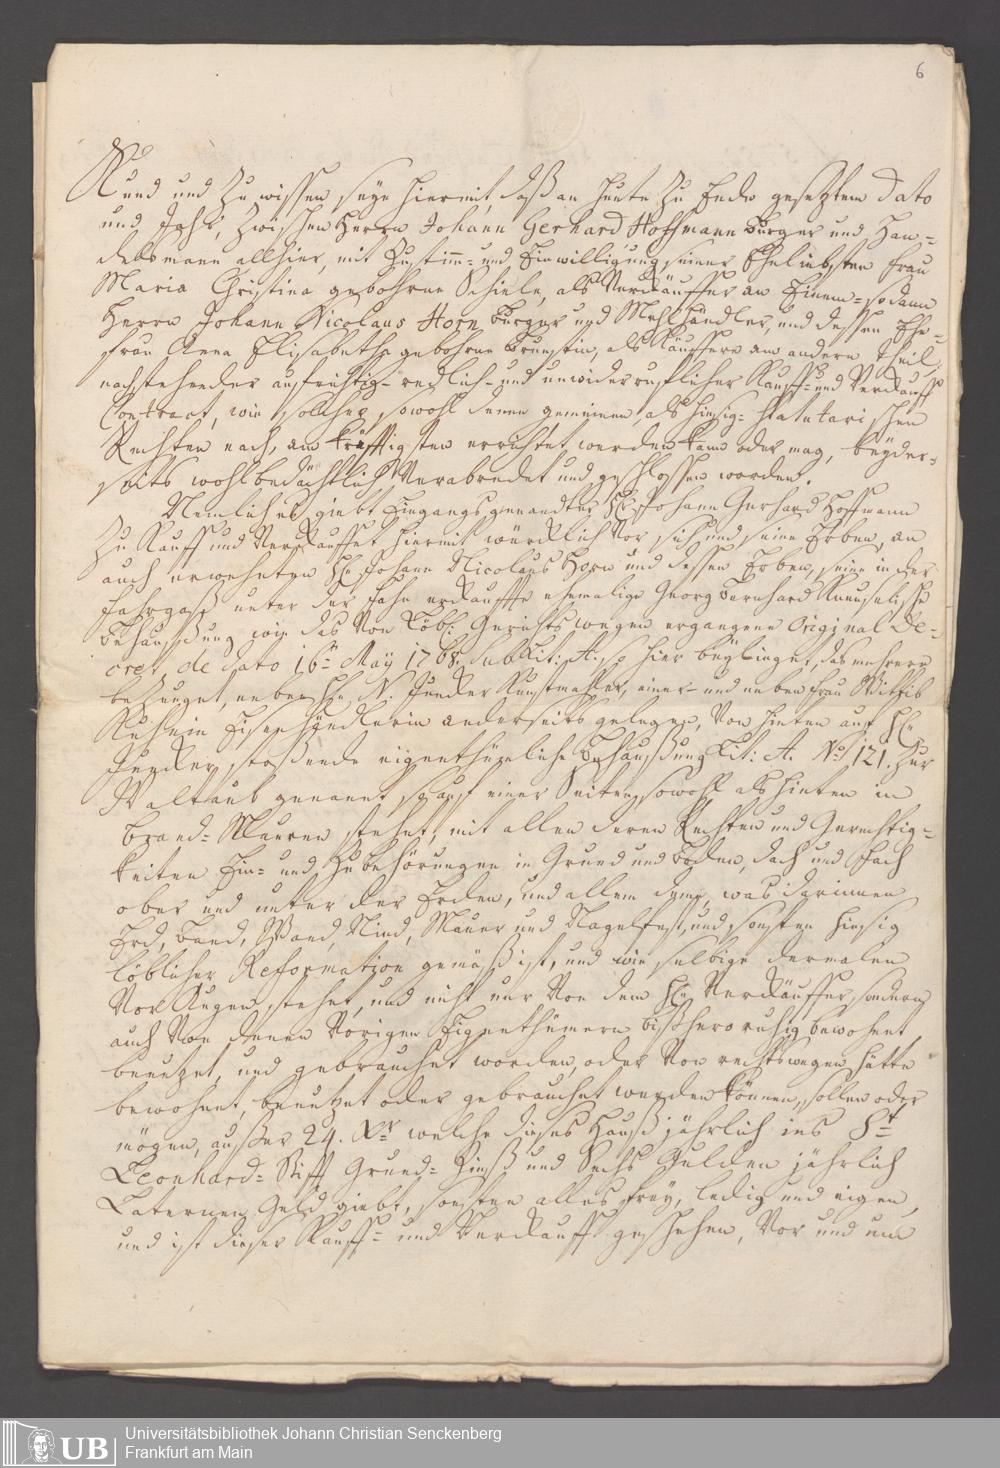 6
Kund und Zu wissen seye hiermit, daß an heute Zu Ende gesetztem Dato
und Jahr, Zwischen Herrn Johann Gerhard Hoffmann Burger und Han-
delsmann allhier, mit Zustimm- und Einwilligung seiner Eheliebsten Frau
Maria Christina gebohrne Schiele, als Verkäuffer an Einem- sodann
Herrn Johann Nicolaus Horn Burger und Mehlhändler, und dessen Ehe-
frau Anna Elisabetha gebohrne Brunstin, als Käuffere am andern Theil,
nachstehender aufrichtig- redlich- und unwiderrufflicher Kauff- und Verkauff
Contract, wie solcher sowohl denen gemeinen, als hiesig- statutarischen
Rechten nach, am kräfftigsten errichtet werden kann oder mag, beyder-
seits wohlbedächtlich Verabredet und geschlossen worden.
Nemlich es giebt Eingangs genandter Hr. Johann Gerhard Hoffmann
Zu Kauff und Verkauffet hiermit würcklich Vor sich und seine Erben, an
auch erwehnten Hr. Johann Nicolaus Horn und dessen Erben, seine in der
Fahrgaß unter der Fahr erkauffte ehemalige Georg Bernhard
Behaußung wie das Von Löbl. Gerichts wegen ergangene Original De-
cret, de dato 16ten May 1768. sub Lit: A. so hier beyliegt, das mehrere
bezeuget, neben Hr. N. Juncker Kunstmahler, einer- und neben Frau Wittib
Eisenhändlerin anderseits gelegen, Von hinten auf Hr.
Juncker stoßende eigenthümliche Behaußung Lit: A. No. 121. Zur
Waltaub genannt, so auf einer Seiten sowohl als hinten in
Brand- Mauren stehet, mit allen deren Rechten und Gerechtig-
keiten Ein- und Zubehörungen in Grund und Boden, Dach und Fach
ober und unter der Erden, und allem deme, was darinnen
Erd, Band, Wand, Nied, Mauer und Nagelfest, und sonsten hiesig
löblicher Reformation gemäß ist, und wie selbige dermalen
Vor Augen stehet, und nicht nur Von dem Hr. Verkäuffer, sondern
auch Von denen Vorigen Eigenthümern bißhero ruhig bewohnt
benutzet, und gebrauchet worden, oder Von rechts wegen hätte
bewohnt, benutzet oder gebrauchet werden können, sollen oder
mögen, außer 24. Xr. welche dieses Hauß jährlich ins St.
Leonhard- Stifft Grund- Zinß und Sechs Gulden jährlich
Laternen Geld giebt, sonsten alles frey, ledig und eigen,
und ist dieser Kauff- und Verkauff geschehen, Vor und um
UB Universitätsbibliothek Johann Christian Senckenberg
Frankfurt am Main